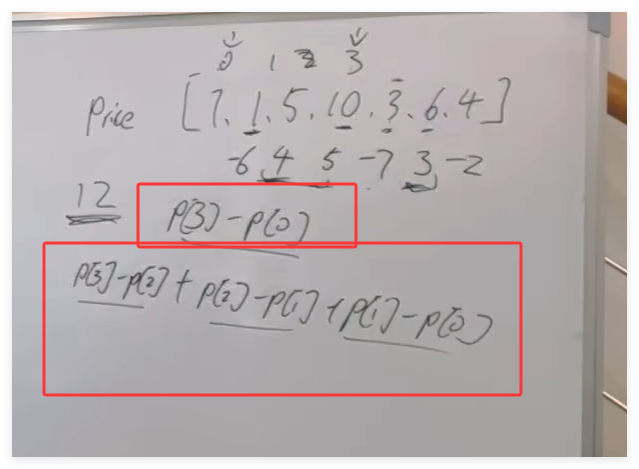 0 1 2 3
Price [7, 1, 5, 10, 3, 6, 4]
-6 4 5 -7 3 -2
12 P[3]-P[0]
P[3]-P[2]+P[2]-P[1]+P[1]-P[0]